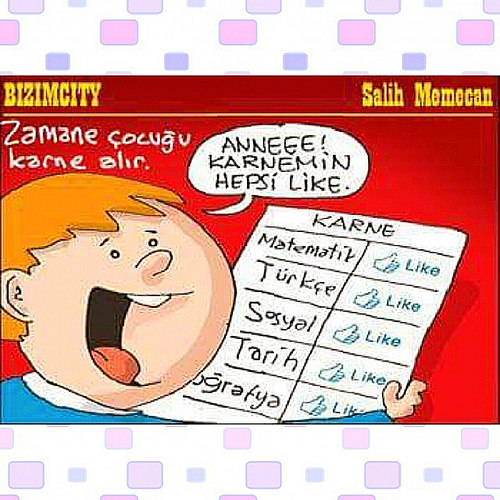 BIZIMCITY
Salih Memecan
Zamane çocuğu
karne alır.
ANNEEE!
KARNEMİN
HEPSİ LIKE.
KARNE
Matematik Like
Türkçe Like
Sosyal Like
Tarih Like
oğrafya Lik